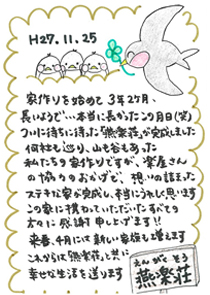 H27.11.25
家作りを始めて3年2ヶ月、
長いようで…本当に長かったこの月日(笑)
ついに待ちに待った「燕楽荘」が完成しました
何社も巡り、山も谷もあった
私たちの家作りですが、楽屋さん
の協力のおかげで、想いの詰まった
ステキな家が完成し、本当にうれしく思います
この家に携わっていただいたすべての
方々に感謝申し上げます!!
来春、4月には新しい家族も増えます
これからは「燕楽荘」と共に
幸せな生活を送ります
えんがくそう
燕楽荘